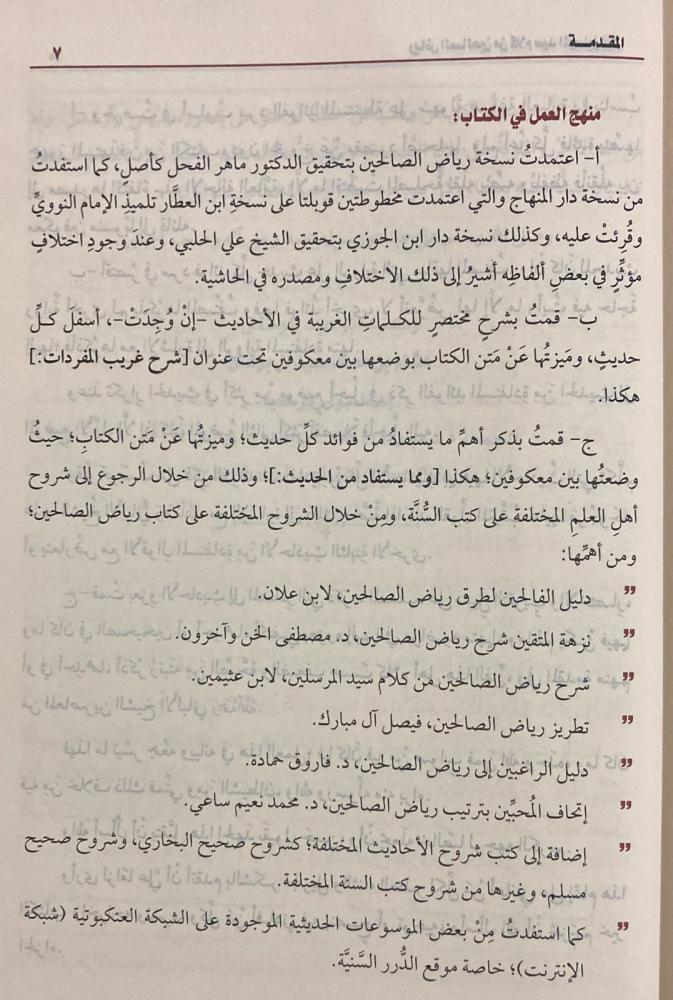 المقدمــة
٧
منهج العمل في الكتاب:
أ- اعتمدتُ نسخة رياض الصالحين بتحقيق الدكتور ماهر الفحل كأصل، كما استفدتُ
من نسخة دار المنهاج والتي اعتمدت مخطوطتين قوبلتا على نسخةِ ابن العطَّار تلميذِ الإمام النوويِّ
وقُرِئتْ عليه، وكذلك نسخة دار ابن الجوزي بتحقيق الشيخ علي الحلبي، وعندَ وجودِ اختلافٍ
مؤثِّرٍ في بعضِ ألفاظِه أشيرُ إلى ذلك الاختلافِ ومصدره في الحاشية.
ب- قمتُ بشرحٍ مختصرٍ للكلماتِ الغريبة في الأحاديث -إنْ وُجِدَتْ-، أسفلَ كلِّ
حديثٍ، ومَيزتُها عَنْ مَتن الكتاب بوضعها بين معكوفين تحت عنوان [شرح غريب المفردات:]
هكذا.
ج- قمتُ بذكر أهمِّ ما يستفادُ من فوائد كلِّ حديث؛ وميزتُها عَنْ مَتن الكتابِ؛ حيثُ
وضعتُها بين معكوفين؛ هكذا [ومما يستفاد من الحديث:]؛ وذلك من خلال الرجوع إلى شروح
أهلِ العلمِ المختلفة على كتب السُّنَّة، ومِنْ خلال الشروح المختلفة على كتاب رياض الصالحين؛
ومن أهمِّها:
" دليل الفالحين لطرق رياض الصالحين، لابن علان.
" نزهة المتقين شرح رياض الصالحين، د. مصطفى الخن وآخرون.
" شرح رياض الصالحين من كلام سيد المرسلين، لابن عثيمين.
" تطريز رياض الصالحين، فيصل آل مبارك.
" دليل الراغبين إلى رياض الصالحين، د. فاروق حمادة.
" إتحاف المُحبِّين بترتيب رياض الصالحين، د. محمد نعيم ساعي.
" إضافة إلى كتب شروح الأحاديث المختلفة؛ كشروح صحيح البخاري، وشروح صحيح
مسلم، وغيرها من شروح كتب السنة المختلفة.
" كما استفدتُ مِنْ بعض الموسوعات الحديثية الموجودة على الشبكة العنكبوتية (شبكة
الإنترنت)؛ خاصة موقع الدُّرر السَّنيَّة.